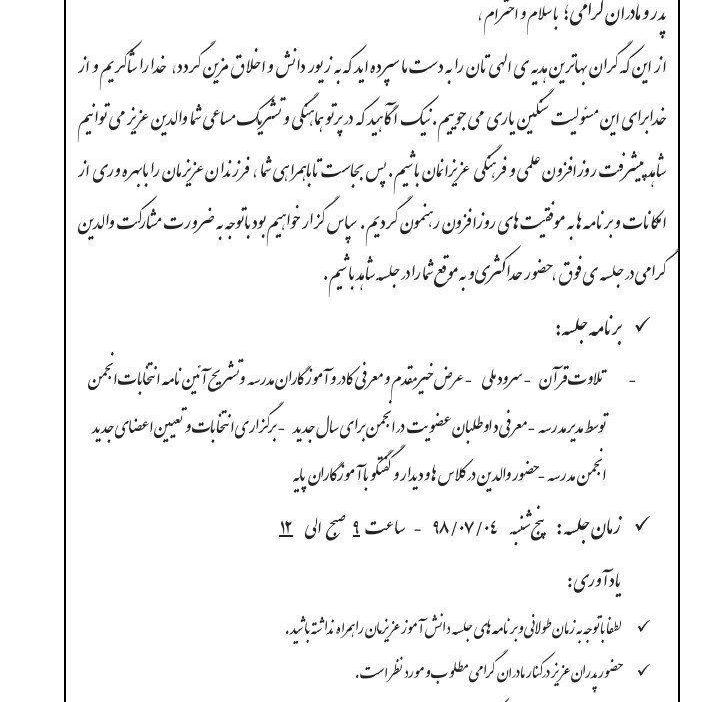 پدر و مادران گرامی؛ باسلام و احترام،
از این که گران بهاترین هدیه ی الهی تان را به دست ما سپرده اید که به زیور دانش و اخلاق مزین گردد، خدا را شاکریم و از
خدا برای این مسئولیت سنگین یاری می جوییم. نیک آگاهید که در پرتو هماهنگی و تشریک مساعی شما والدین عزیز می توانیم
شاهد پیشرفت روزافزون علمی و فرهنگی عزیزانمان باشیم. پس بجاست تا با همراهی شما، فرزندان عزیزمان را با بهره وری از
امکانات و برنامه ها به موفقیت های روزافزون رهنمون گردیم. سپاس گزار خواهیم بود با توجه به ضرورت مشارکت والدین
گرامی در جلسه ی فوق، حضور حداکثری و به موقع شما را در جلسه شاهد باشیم.
✓ برنامه جلسه:
- تلاوت قرآن -سرود ملی -عرض خیرمقدم و معرفی کادر و آموزگاران مدرسه و تشریح آئین نامه انتخابات انجمن
توسط مدیر مدرسه -معرفی داوطلبان عضویت در انجمن برای سال جدید -برگزاری انتخابات و تعیین اعضای جدید
انجمن مدرسه -حضور والدین در کلاس ها و دیدار و گفتگو با آموزگاران پایه
✓ زمان جلسه: پنج شنبه ۹۸/۰۷/۰۴ - ساعت ۹ صبح الی ۱۲
یادآوری:
✓ لطفا با توجه به زمان طولانی و برنامه های جلسه دانش آموز عزیزمان را همراه نداشته باشید.
✓ حضور پدران عزیز در کنار مادران گرامی مطلوب و مورد نظر است.